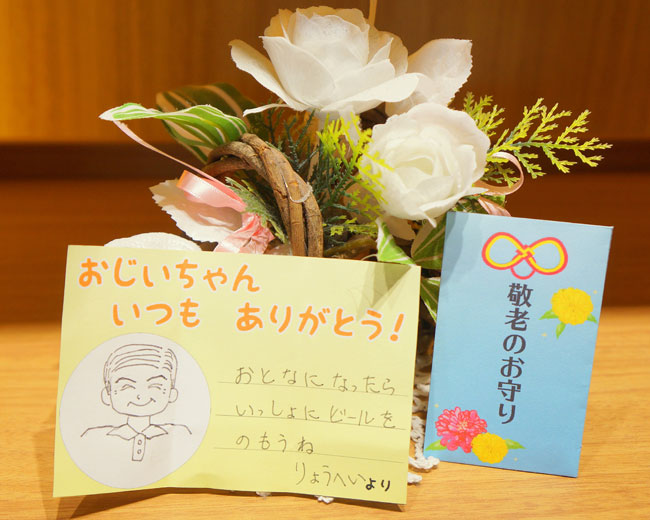 おじいちゃん
いつも ありがとう!
おとなになったら
いっしょにビールを
のもうね
りょうへいより
敬老のお守り